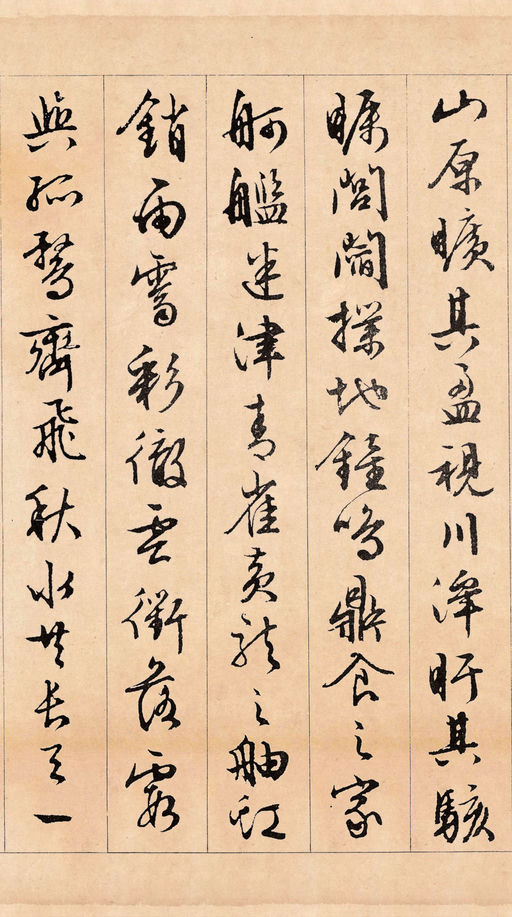 山原曠其盈視川澤盱其駭
矚閭閻撲地鐘鳴鼎食之家
舸艦迷津青雀黄龍之舳虹
銷雨霽彩徹雲衢落霞
與孤鶩齊飛秋水共長天一